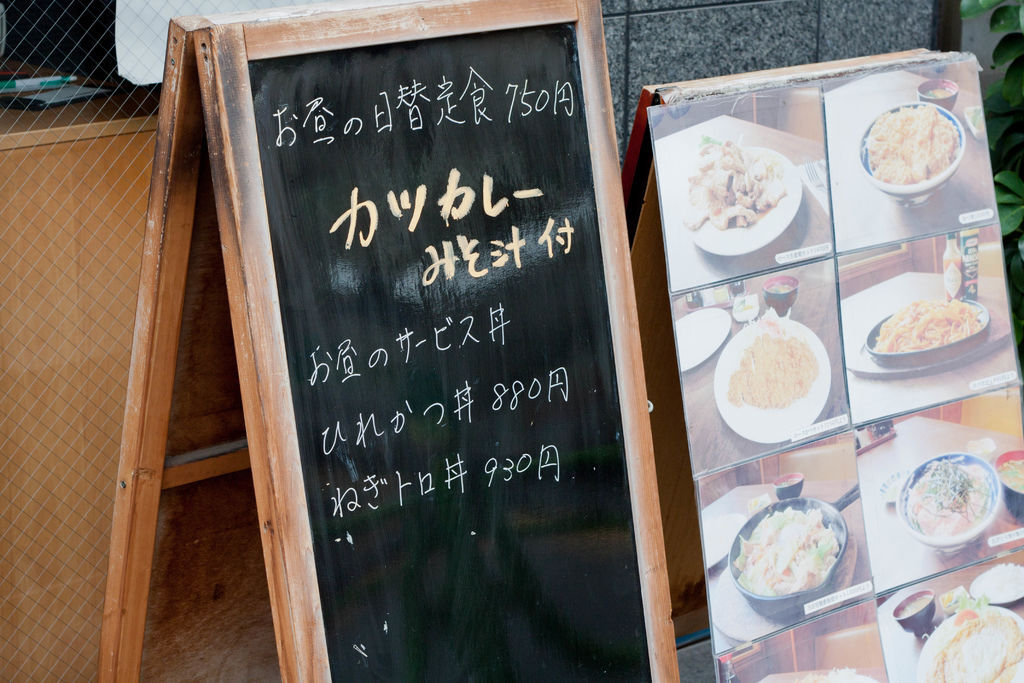 お昼の日替定食 750円
カツカレー
みそ汁付
お昼のサービス丼
ひれかつ丼 880円
ねぎトロ丼 930円